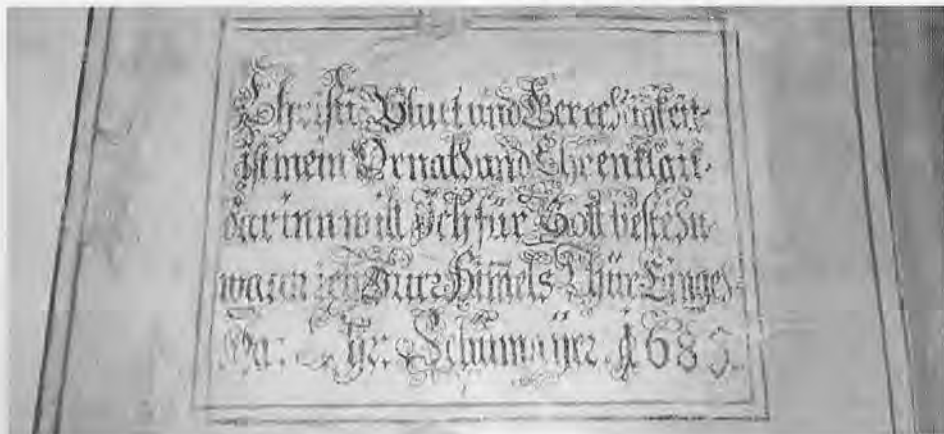 Christi Bluet und Gerechtigkeit
ist mein Ornath und Ehrenklaÿd
darinn will Ich für Gott bestehn
wann ich zur Himels Thür Einge
Schumaÿer 168